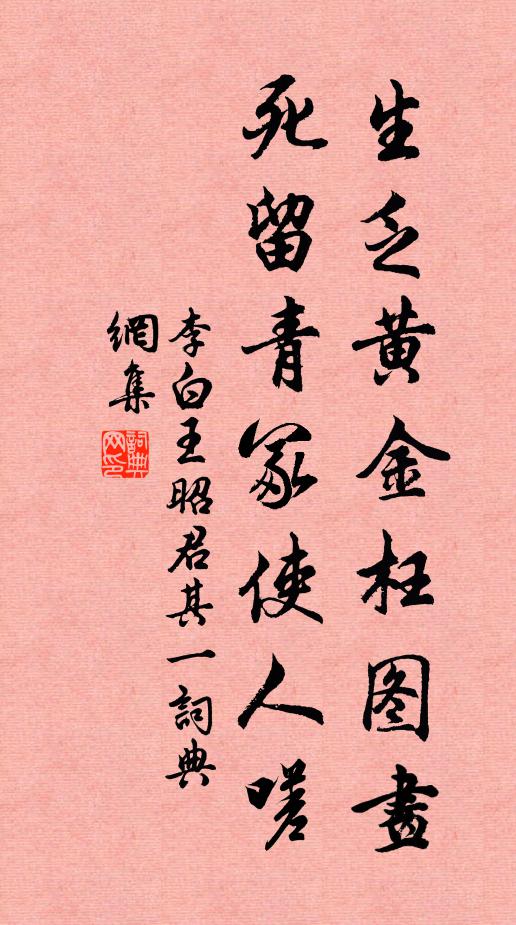 生乏黄金枉图畫
死留青冢使人嗟
李白王昭君其一詞典
網集
詞典
网印